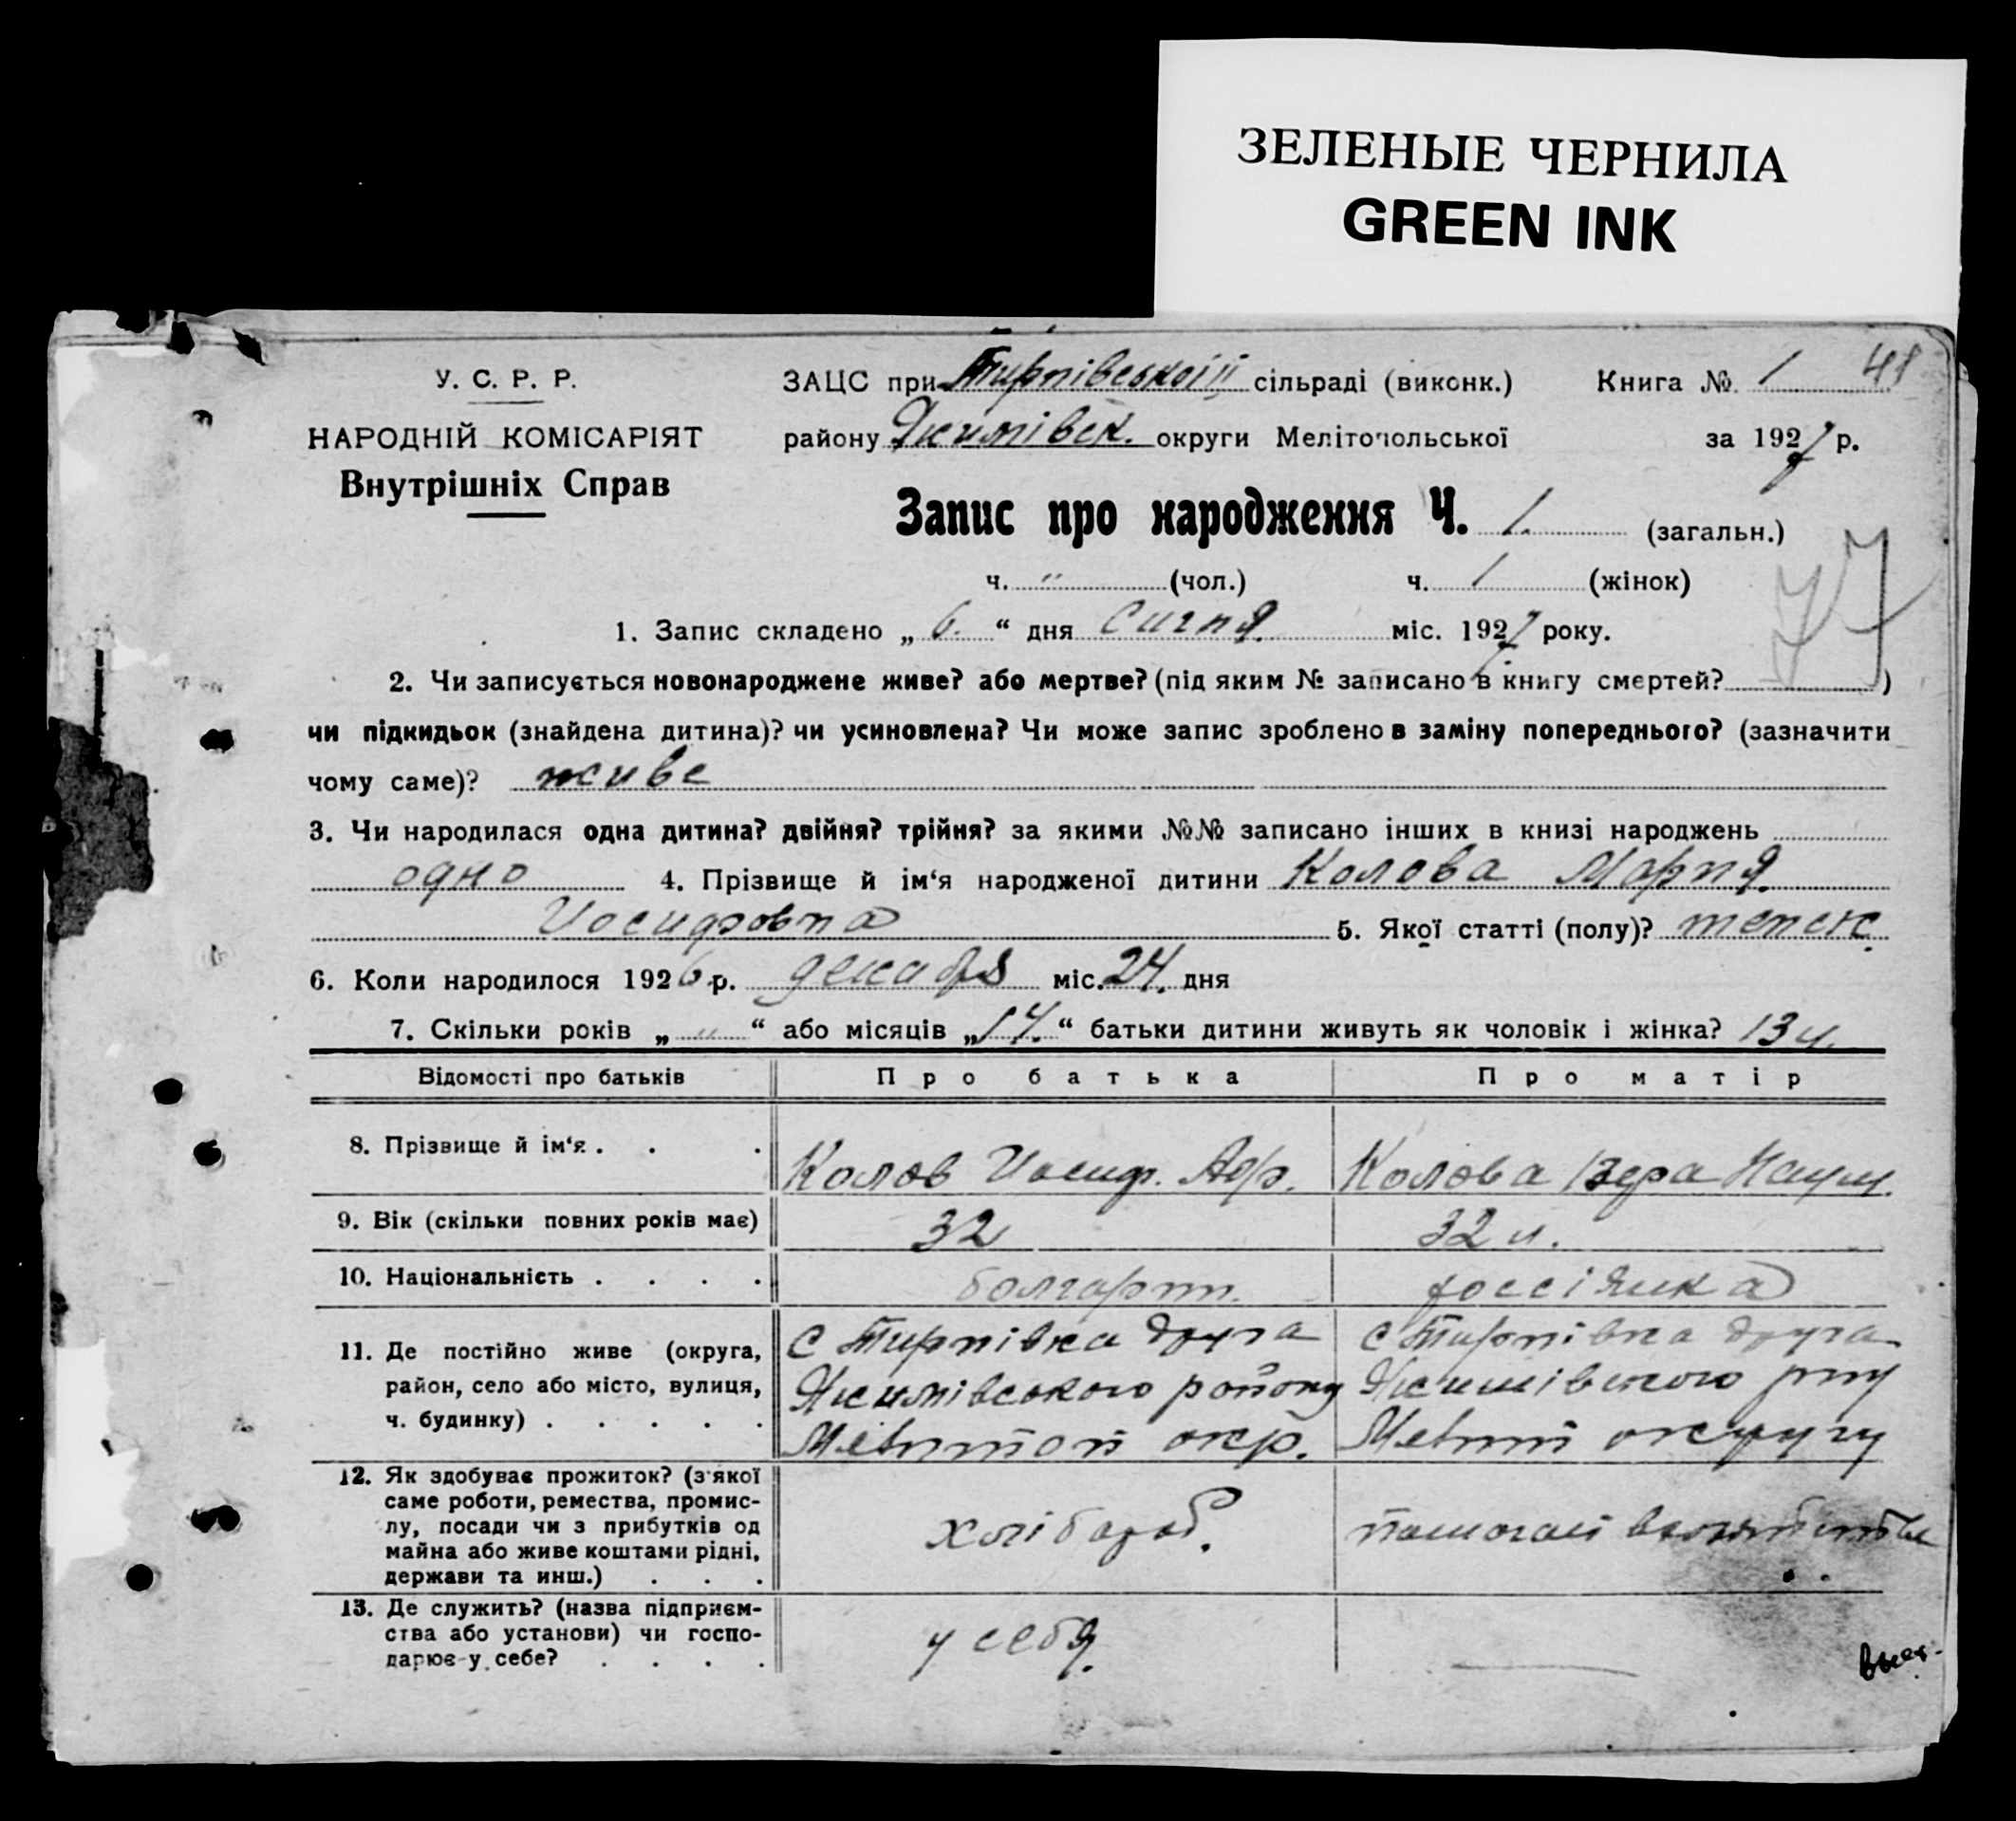 ЗЕЛЕНЫЕ ЧЕРНИЛА
GREEN INK
У. С. Р. Р.
НАРОДНІЙ КОМІСАРІЯТ
Внутрішніх Справ
ЗАЦС при сільраді (виконк.) Книга № 1 41
району Якимівськ. округи Мелітопольської за 1927 р.
Запис про народження Ч. 1. (загальн.)
ч. " (чол.) ч. 1 (жінок)
77
1. Запис складено „ 6. “ дня Сичня. міс. 1927 року.
2. Чи записується новонароджене живе? або мертве? (під яким № записано в книгу смертей? )
чи підкидьок (знайдена дитина)? чи усиновлена? Чи може запис зроблено в заміну попереднього? (зазначити
чому саме)? живе
3. Чи народилася одна дитина? двійня? трійня? за якими №№ записано інших в книзі народжень
одно 4. Прізвище й ім‘я народженої дитини Колова Мария.
Иосифовна 5. Якої статті (полу)? женск.
6. Коли народилося 1926 р. декабря міс. 24. дня
7. Скільки років „ " “ або місяців „ “ батьки дитини живуть як чоловік і жінка? 13
Відомості про батьків Про батька Про матір
8. Прізвище й ім‘я . . . Колов Иосиф. Колова Вера Наум.
9. Вік (скільки повних років має) 32 32
10. Національність . . . . болгарин. россіянка
11. Де постійно живе (округа, район, село або місто, вулиця, ч. будинку) . . . . .
с друга
Якимівського району
окр.
с друга
Якимівського
округу
12. Як здобуває прожиток? (з якої саме роботи, ремества, промис-
лу, посади чи з прибутків од
майна або живе коштами рідні,
держави та инш.) . . .
хлібороб.
13. Де служить? (назва підприєм-
ства або установи) чи госпо-
дарює у себе? . . . .
у себя.